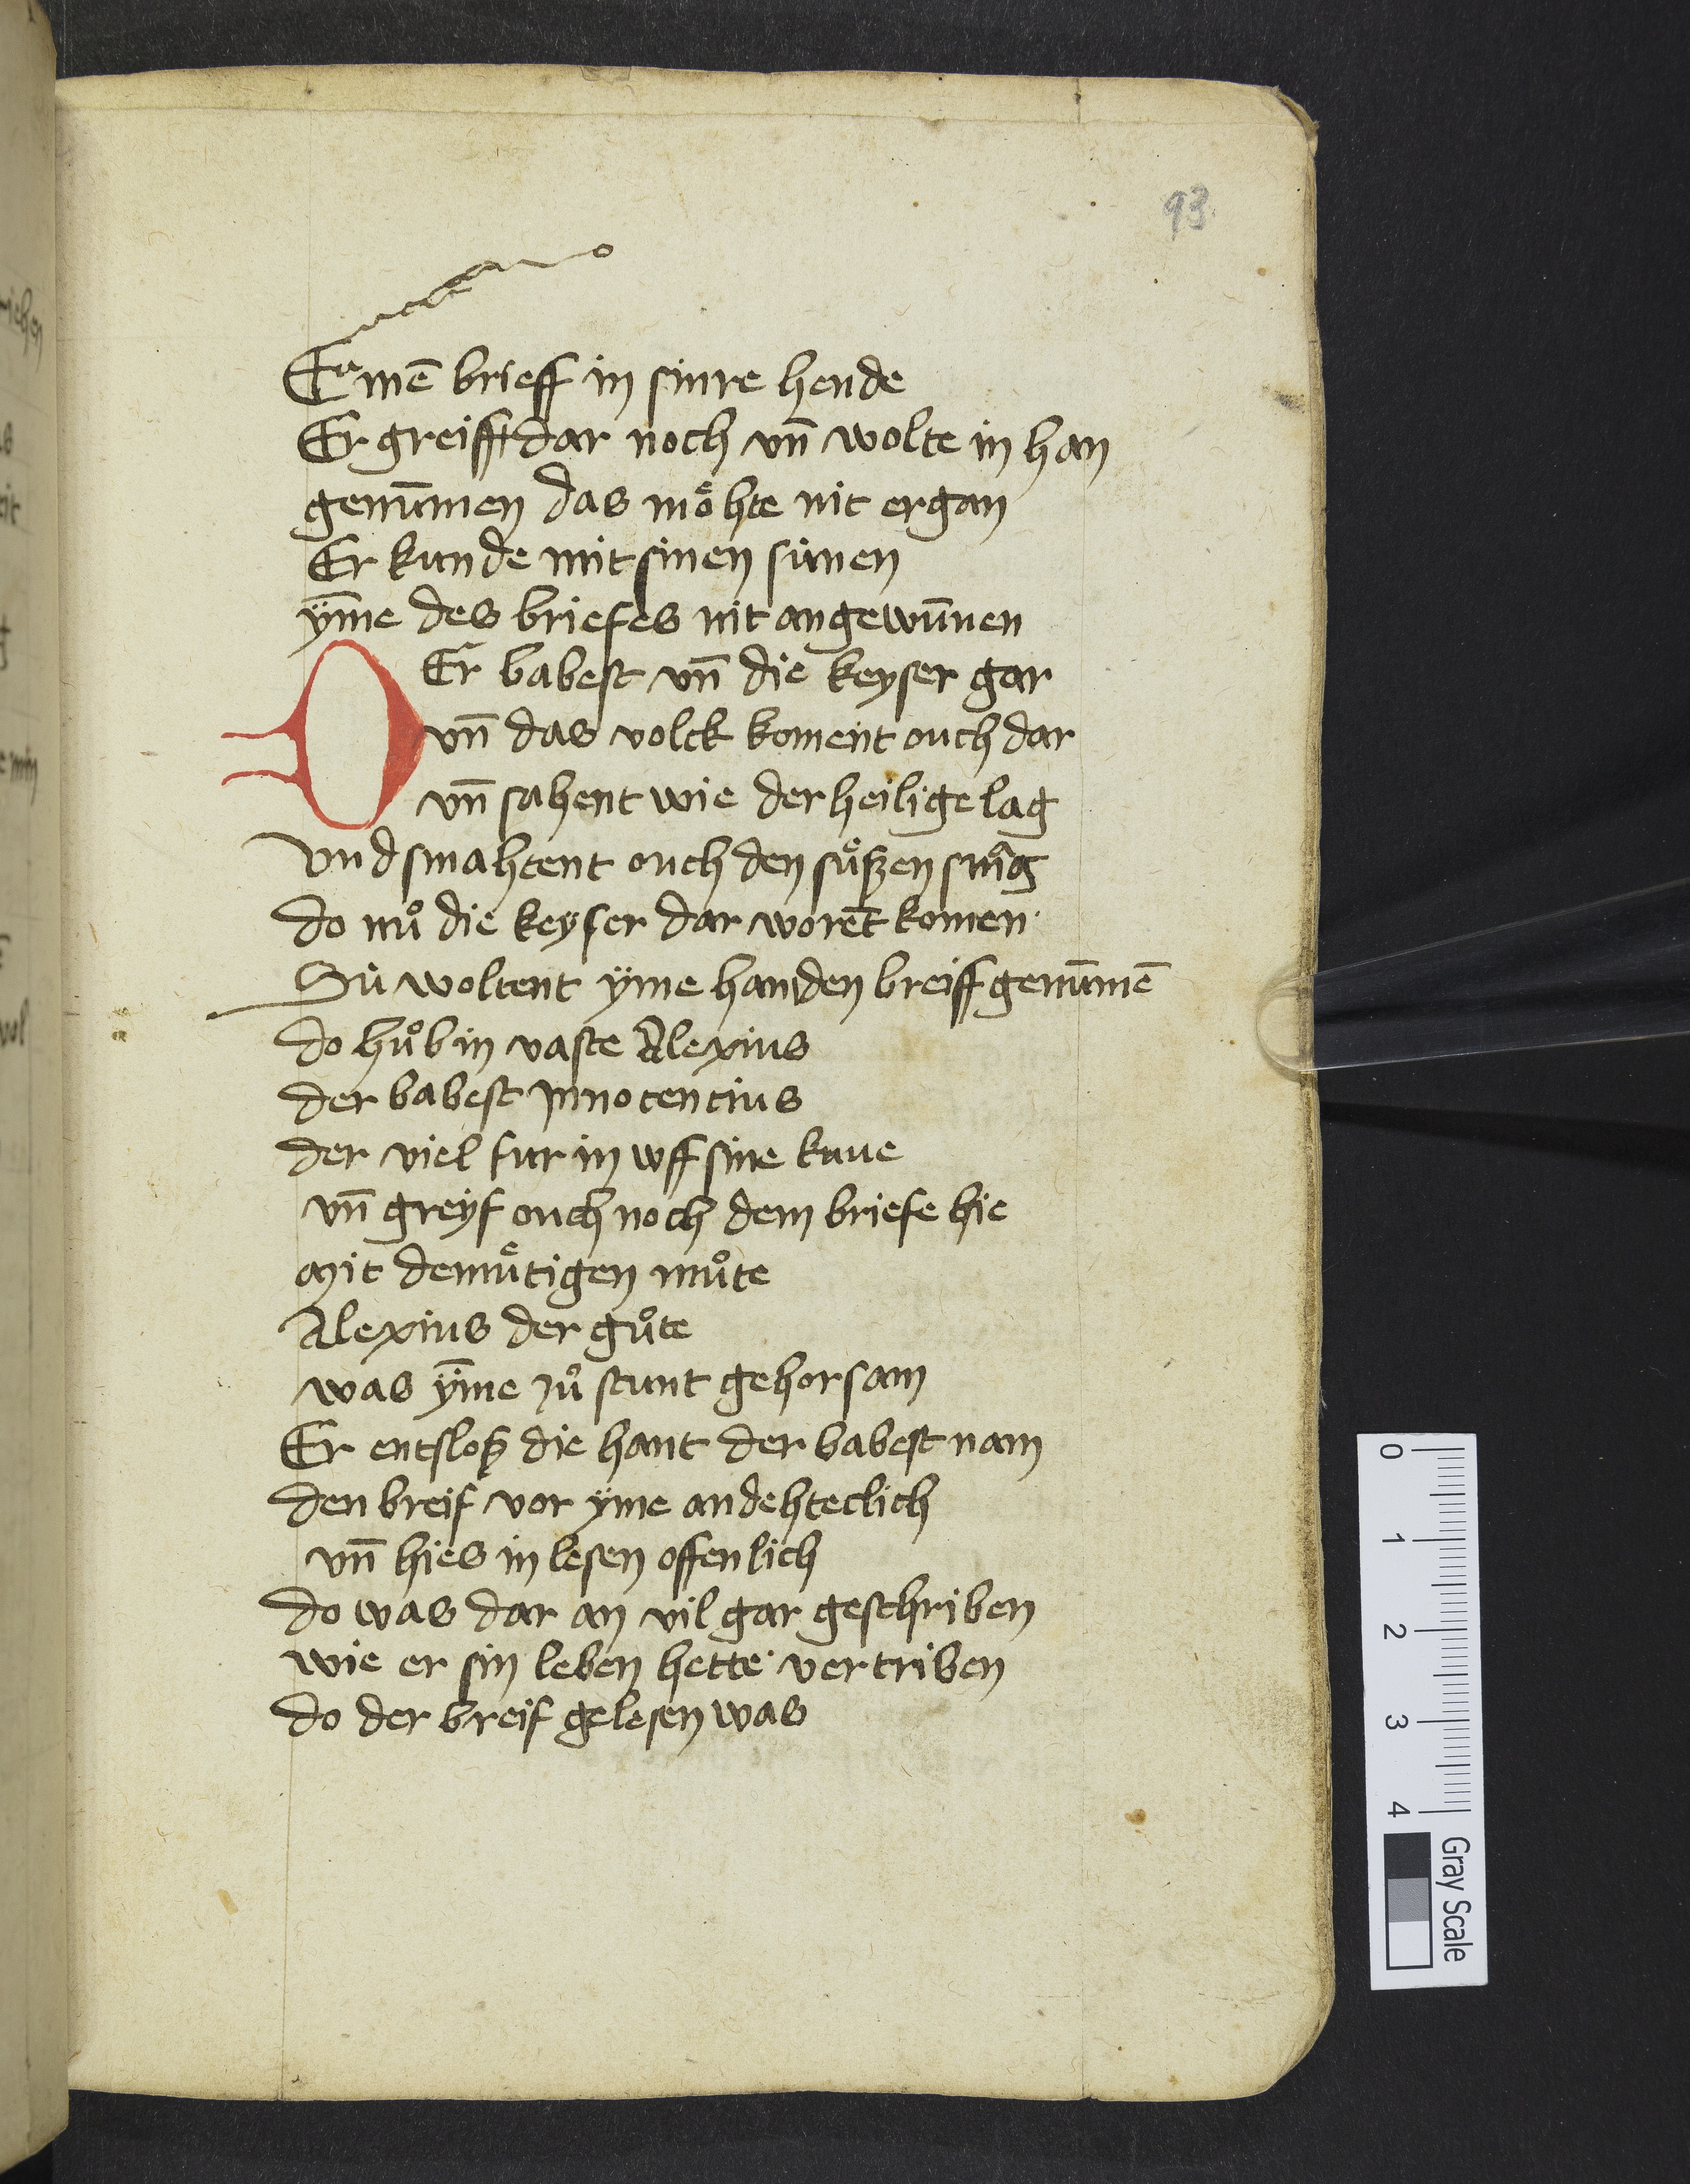 93
Einē brieff in sinre hende
Er greifft dar noch vn̄ wolte in han
genūmen das moͤhte nit ergan
Er kunde mit sinen sinnen
ÿme des briefes nit angewūnen
Er babest vn̄ die keyser gar
D vn̄ das volck koment ouch dar
vn̄ sahent wie der heilige lag
Vnd smahtent ouch den suͤßen smag
do nuͦ die keyser dar worēt komen
Sü woltent ÿme han den breiff genūmē
do huͦb in vaste Alexius
der babest jnnocencius
der viel fur in wff sine knue
vn̄ greyf ouch noch dem briefe hie
mit demuͤtigen muͦte
Alexius der guͦte
was ÿme zuͦ stunt gehorsam
Er entsloß die hant der babest nam
den breif vor ÿme andehteclich
vn̄ hies in lesen offenlich
do was dar an vil gar geschriben
wie er sin leben hette vertriben
do der breif gelesen was
0 1 2 3 4
Gray Scale